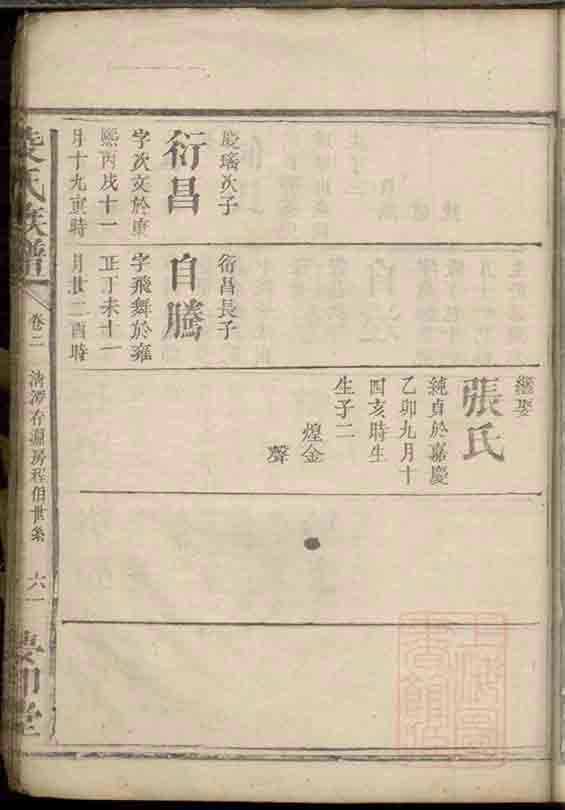 繼娶
張氏
純貞於嘉慶
乙卯九月十
四亥時生
生子二
煌金
聲
慶瑤次子
衍昌
字次文於康
熙丙戌十一
月十九寅時
衍昌長子
自騰
字飛舞於雍
正丁未十一
月廿二酉時
氏族譜
卷二
存源房程伯世系
六一
堂
上海圖
書館